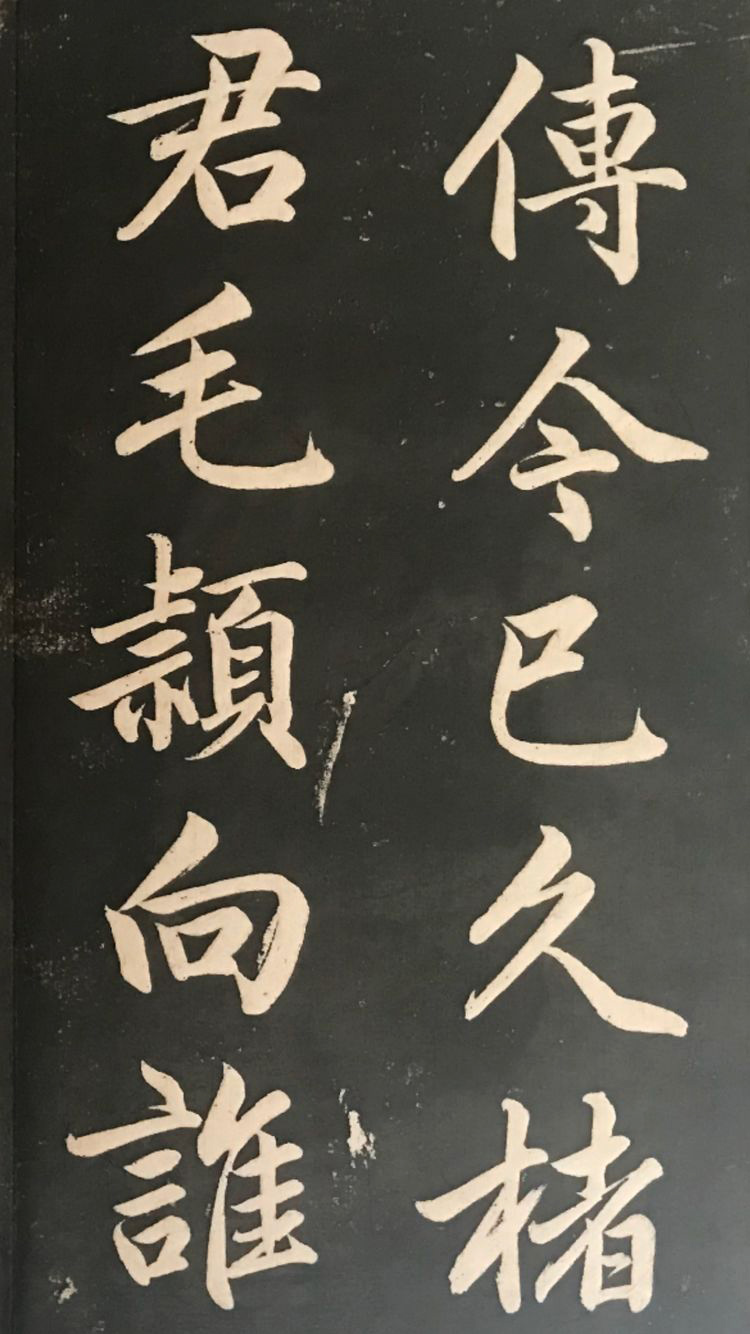 傳今已久楮
君毛穎向誰